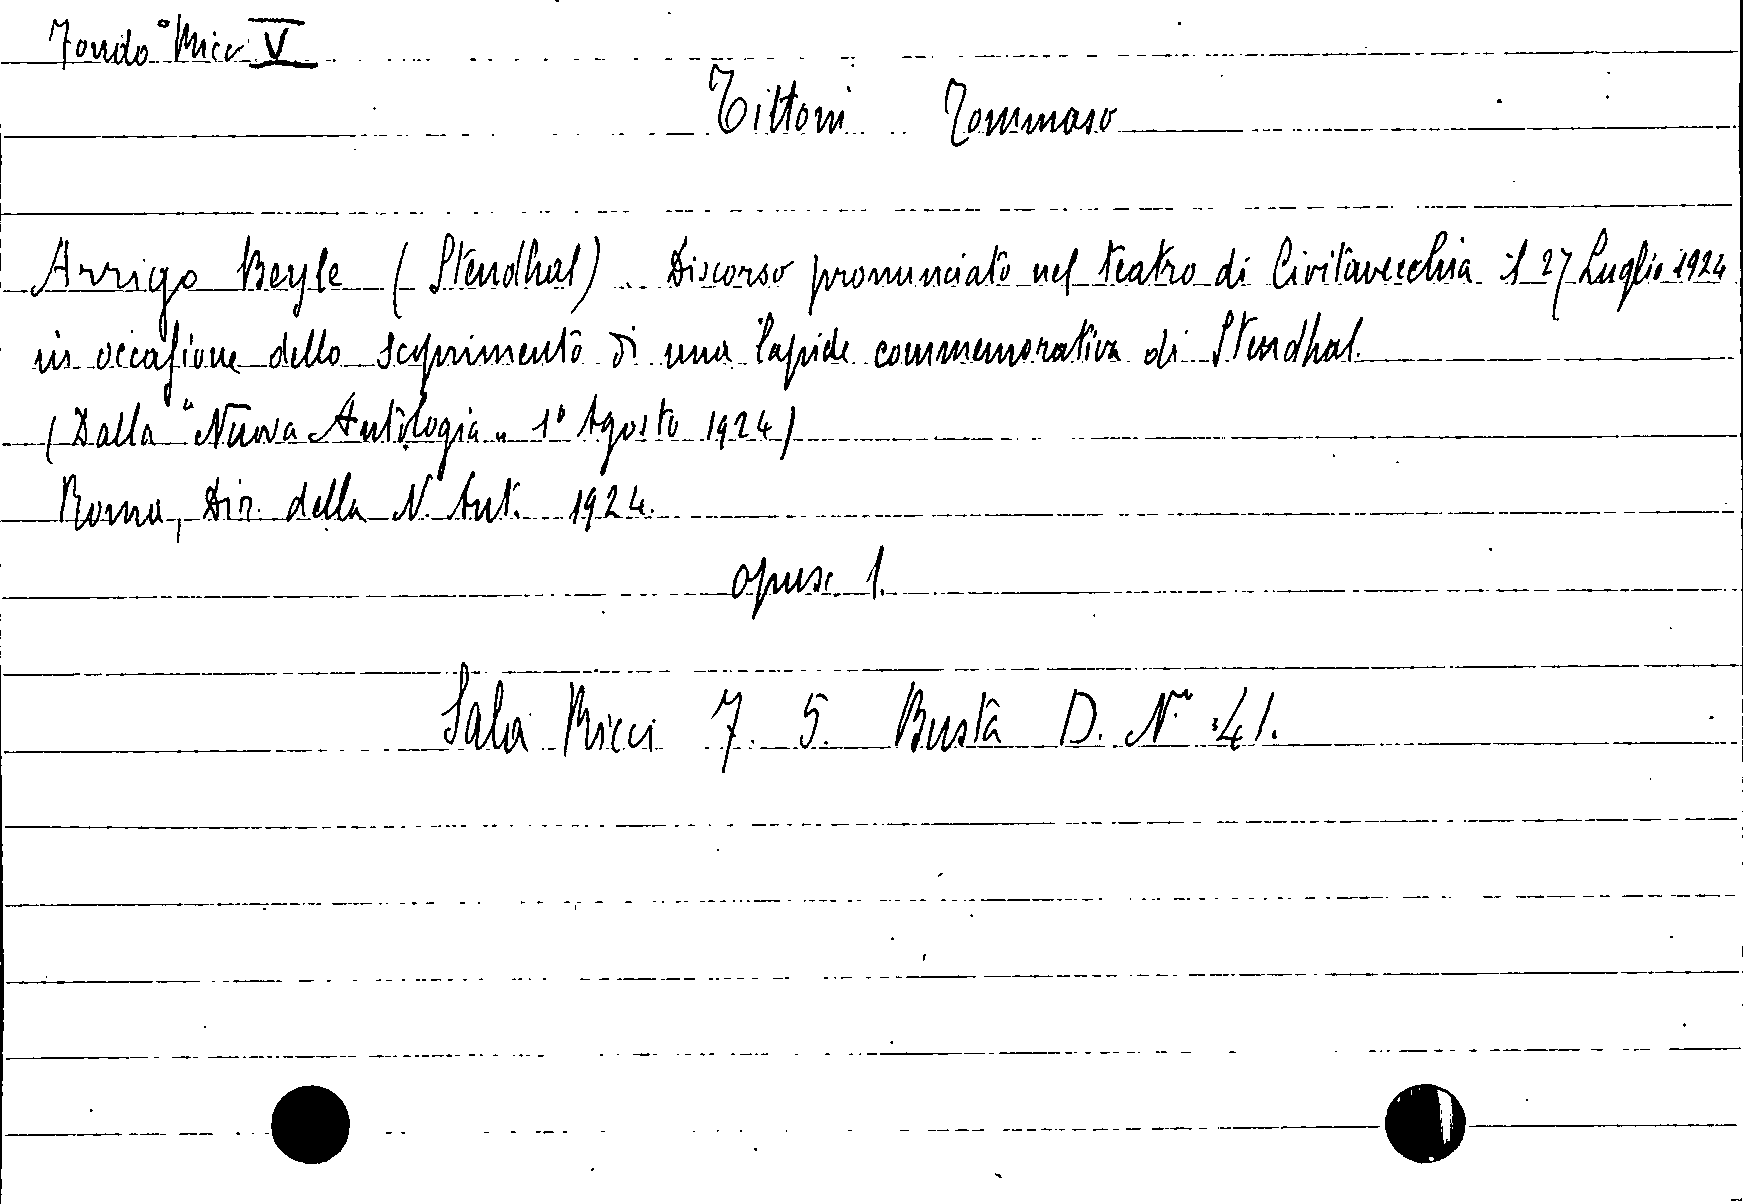 Fondo Ricci V
Tittoni Tommaso
Arrigo Beyle (Stendhal) . Discorso pronunciato nel teatro di Civitavecchia il 27 Luglio 1924
in occasione dello scoprimento di una lapide commemorativa di Stendhal.
(Dalla "Nuova Antologia„ 1° Agosto 1924)
Roma, Dir. della N. Ant. 1924.
opusc. 1.
Sala Ricci 7. 5. Busta D. N. 41.